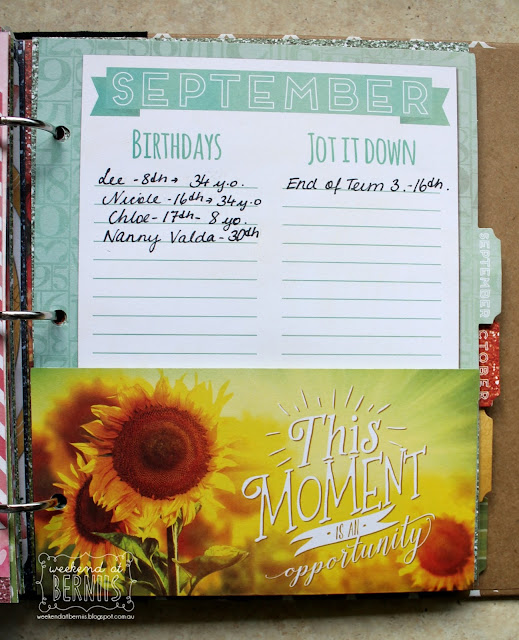 SEPTEMBER
BIRTHDAYS
Lee - 8th → 34 y.o.
Nicole - 16th → 34 y.o
Chloe - 17th - 8 yo.
Nanny Valda - 30th
JOT IT DOWN
End of Term 3. - 16th.
SEPTEMBER
OCTOBER
This
MOMENT
IS AN
opportunity
weekend at
BERNIIS
weekendatberniis.blogspot.com.au